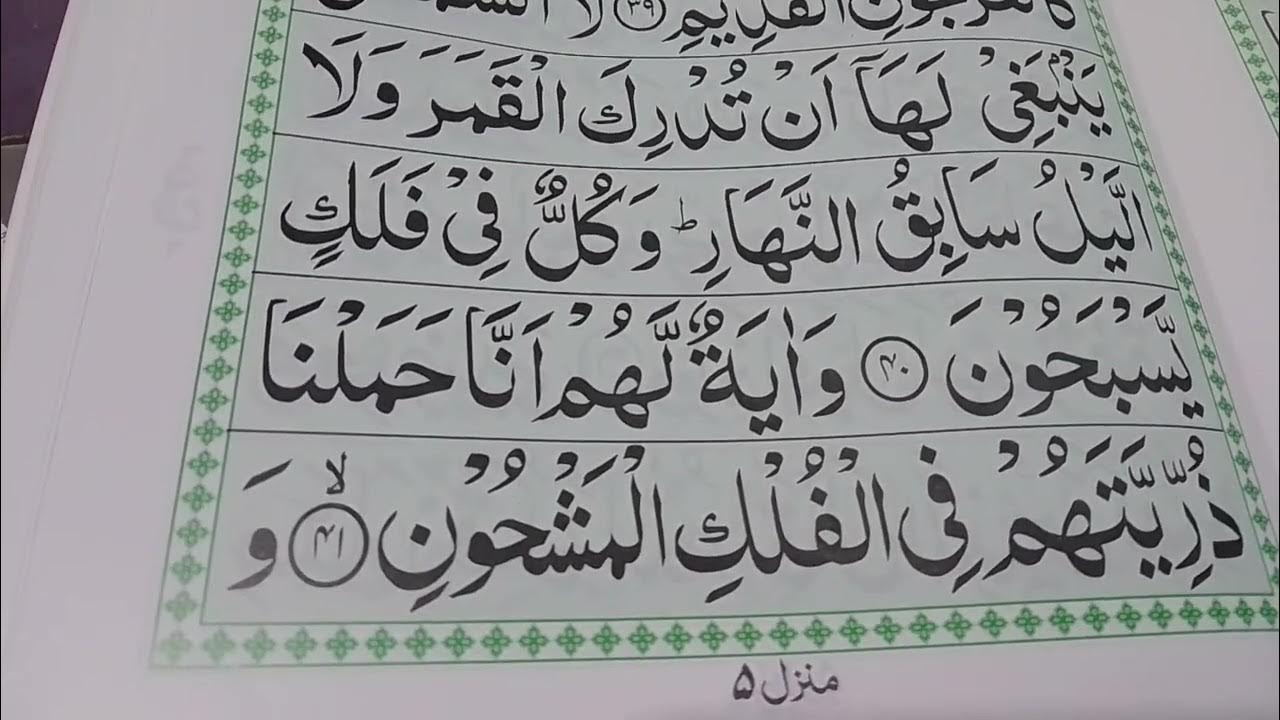 كَالْعُرْجُوْنِ الْقَدِيْمِ ﴿۳۹﴾ لَا الشَّمْسُ
يَنْۢبَغِىْ لَهَاۤ اَنْ تُدْرِكَ الْقَمَرَ وَلَا
الَّيْلُ سَابِقُ النَّهَارِ ؕ وَ كُلٌّ فِىْ فَلَكٍ
يَّسْبَحُوْنَ ﴿۴۰﴾ وَاٰيَةٌ لَّهُمْ اَنَّا حَمَلْنَا
ذُرِّيَّتَهُمْ فِى الْفُلْكِ الْمَشْحُوْنِ ﴿۴۱﴾ۙ وَ
منزل ۵